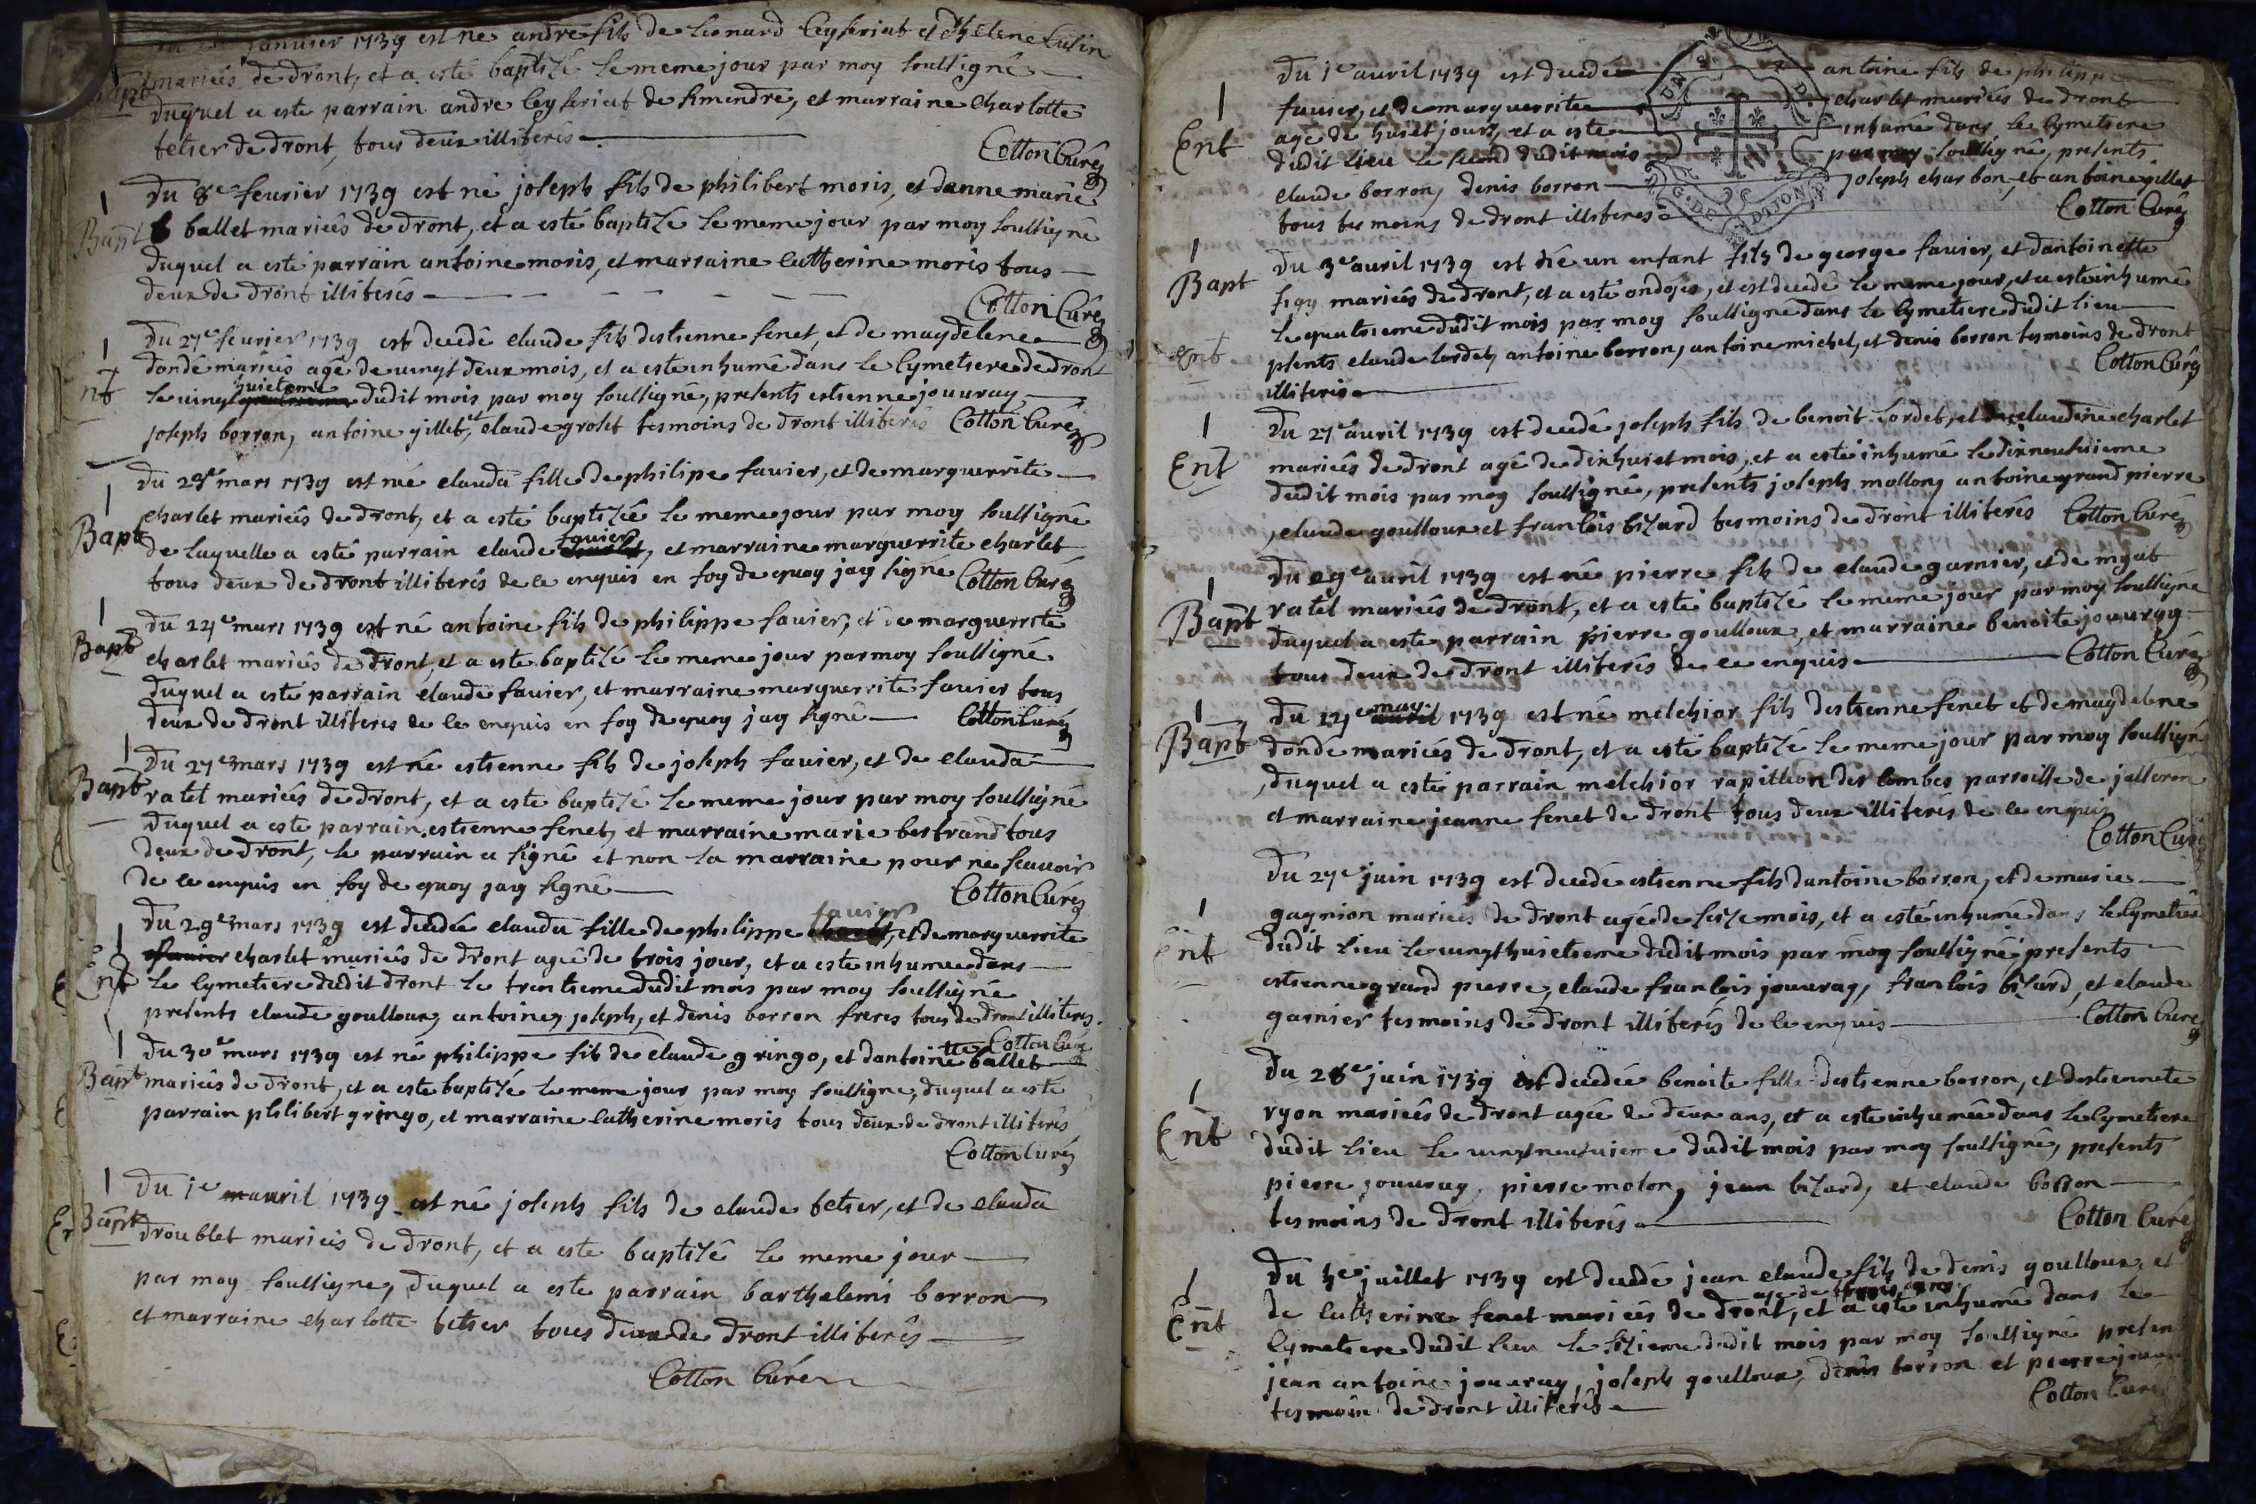 januier 1739 est né andré fils de lionard Ceyseriat et dhelene Cusin
Bapt mariés de dront, et a esté baptisé le meme jour par moy soussigné
duquel a esté parrain andre Ceyseriat de simandre, et marraine charlotte
tetier de dront, tous deux illiterés
Cotton Curé
1
Du 8e feurier 1739 est né joseph fils de philibert moris, et danne marie
Bapt ballet mariés de dront, et a esté baptisé le meme jour par moy soussigné
duquel a esté parrain antoine moris, et marraine Catherine moris tous
deux de dront illiterés
Cotton Curé
1
Du 27e feurier 1739 est decedé claude fils destienne fenet, et de magdelene
dondé mariés agé de vingt deux mois, et a esté inhumé dans le Cymetiere de dront
huictieme
Ent le vingt dudit mois par moy soussigné, presents estienne jouuray,
joseph borron, antoine gillet, claude grolet tesmoins de dront illiterés Cotton Curé
1
Du 29e mars 1739 est née clauda fille de philipe fauier, et de marguerrite
charlet mariés de dront, et a esté baptisée le meme jour par moy soussigné
fauier
Bapt de laquelle a esté parrain claude charlet, et marraine marguerrite charlet
tous deux de dront illiterés de ce enquis en foy de quoy jay signé Cotton Curé
1
Du 24e mars 1739 est né antoine fils de philippe fauier, et de marguerrite
Bapt charlet mariés de dront, et a esté baptisé le meme jour par moy soussigné
duquel a esté parrain claude fauier, et marraine marguerrite fauier tous
deux de dront illiteres de ce enquis en foy de quoy jay signé Cotton Curé
1
Du 27e mars 1739 est né estienne fils de joseph fauier, et de clauda
Bapt ratel mariés de dront, et a esté baptisé le meme jour par moy soussigné
duquel a esté parrain estienne fenet, et marraine marie bertrand tous
deux de dront, le parrain a signé et non la marraine pour ne scauoir
de ce enquis en foy de quoy jay signé
Cotton Curé
fauier
1
Du 29e mars 1739 est decedée clauda fille de philippe charlet, et de marguerrite
fauier charlet mariés de dront agée de trois jour, et a esté inhumee dans
Ent le Cymetiere dudit dront le trentieme dudit mois par moy soussigné
presents claude goulloux, antoine, joseph, et denis borron freres tous de dront illiteres.
Cotton Curé
1
Du 30e mars 1739 est né philippe fils de claude gringo, et dantoinette ballet
Bapt mariés de dront, et a esté baptisé le meme jour par moy soussigne, duquel a esté
parrain philibert gringo, et marraine Catherine moris tous deux de dront illiterés
Cotton Curé
1
Du 1e auril 1739 est né joseph fils de claude tetier, et de clauda
Bapt droublet mariés de dront, et a esté baptisé le meme jour
par moy soussigne, duquel a esté parrain barthelemi borron
et marraine charlotte tetier tous deux de dront illiterés
Cotton Curé
Du 1e auril 1739 est decedé antoine fils de philippe
1
fauier, et de marguerrite charlet mariés de dront
Ent agé de huict jours, et a esté inhumé dans le Cymetiere
dudit lieu le second dudit mois par moy soussigné, presents
claude borron, denis borron joseph charbon, et antoine gillet
tous tesmoins de dront illiteres
Cotton Curé
1
Du 3e auril 1739 est né un enfant fils de george fauier, et dantoinette
Bapt figy mariés de dront, et a esté ondoyé, et est decedé le meme jour, et a esté inhumé
le quatrieme dudit mois par moy soussigné dans le Cymetiere dudit lieu
ent pñts claude lordet, antoine borron, antoine michel, et denis borron tesmoins de dront
illiterés
Cotton Curé
1
Du 27e auril 1739 est decedé joseph fils de benoit Lordet, et de claudine charlet
Ent mariés de dront agé de dixhuict mois, et a esté inhumé le dixneufuieme
dudit mois par moy soussigné, presents joseph mollon, antoine grand pierre
, claude goulloux et francois bizard tesmoins de dront illiterés Cotton Curé
1
Du 29e auril 1739 est né pierre fils de claude garnier, et de mgat
Bapt ratel mariés de dront, et a esté baptisé le meme jour par moy soussigné
duquel a esté parrain pierre goulloux, et marraine benoite jouuray
tous deux de dront illiterés de ce enquis
Cotton Curé
1
may
Du 14e auril 1739 est né melchior fils destienne fenet et de magdelene
Bapt dondé mariés de dront, et a esté baptisé le meme jour par moy soussigné
, duquel a esté parrain melchior rapillion des Combes parroisse de jasseron
et marraine jeanne fenet de dront tous deux illiterés de ce enquis
Cotton Curé
Du 27e juin 1739 est decedé estienne fils dantoine borron, et de marie
1
gagnion mariés de dront agé de seize mois, et a esté inhumé dans le Cymetiere
Ent dudit lieu le vingt huictieme dudit mois par moy soussigné presents
estienne grand pierre, claude francois jouuray, francois bizard, et claude
garnier tesmoins de dront illiterés de ce enquis
Cotton Curé
Du 28e juin 1739 est decedée benoite fille destienne borron, et destiennete
1
ryon mariés de dront agée de deux ans, et a esté inhumée dans le Cymetiere
Ent dudit lieu le vingtneufuieme dudit mois par moy soussigné, presents
pierre jouuray, pierre molon, jean bizard, et claude borron
tesmoins de dront illiterés
Cotton Curé
Du 5e juillet 1739 est decedé jean claude fils de denis goulloux, et
1
agé de trois ans
de Catherine fenet mariés de dront, et a esté inhumé dans le
Ent Cymetiere dudit lieu le sizieme dudit mois par moy soussigné presen
jean antoine jouuray, joseph goulloux, denis borron et pierre jouu
tesmoin de dront illiterés
Cotton Curé